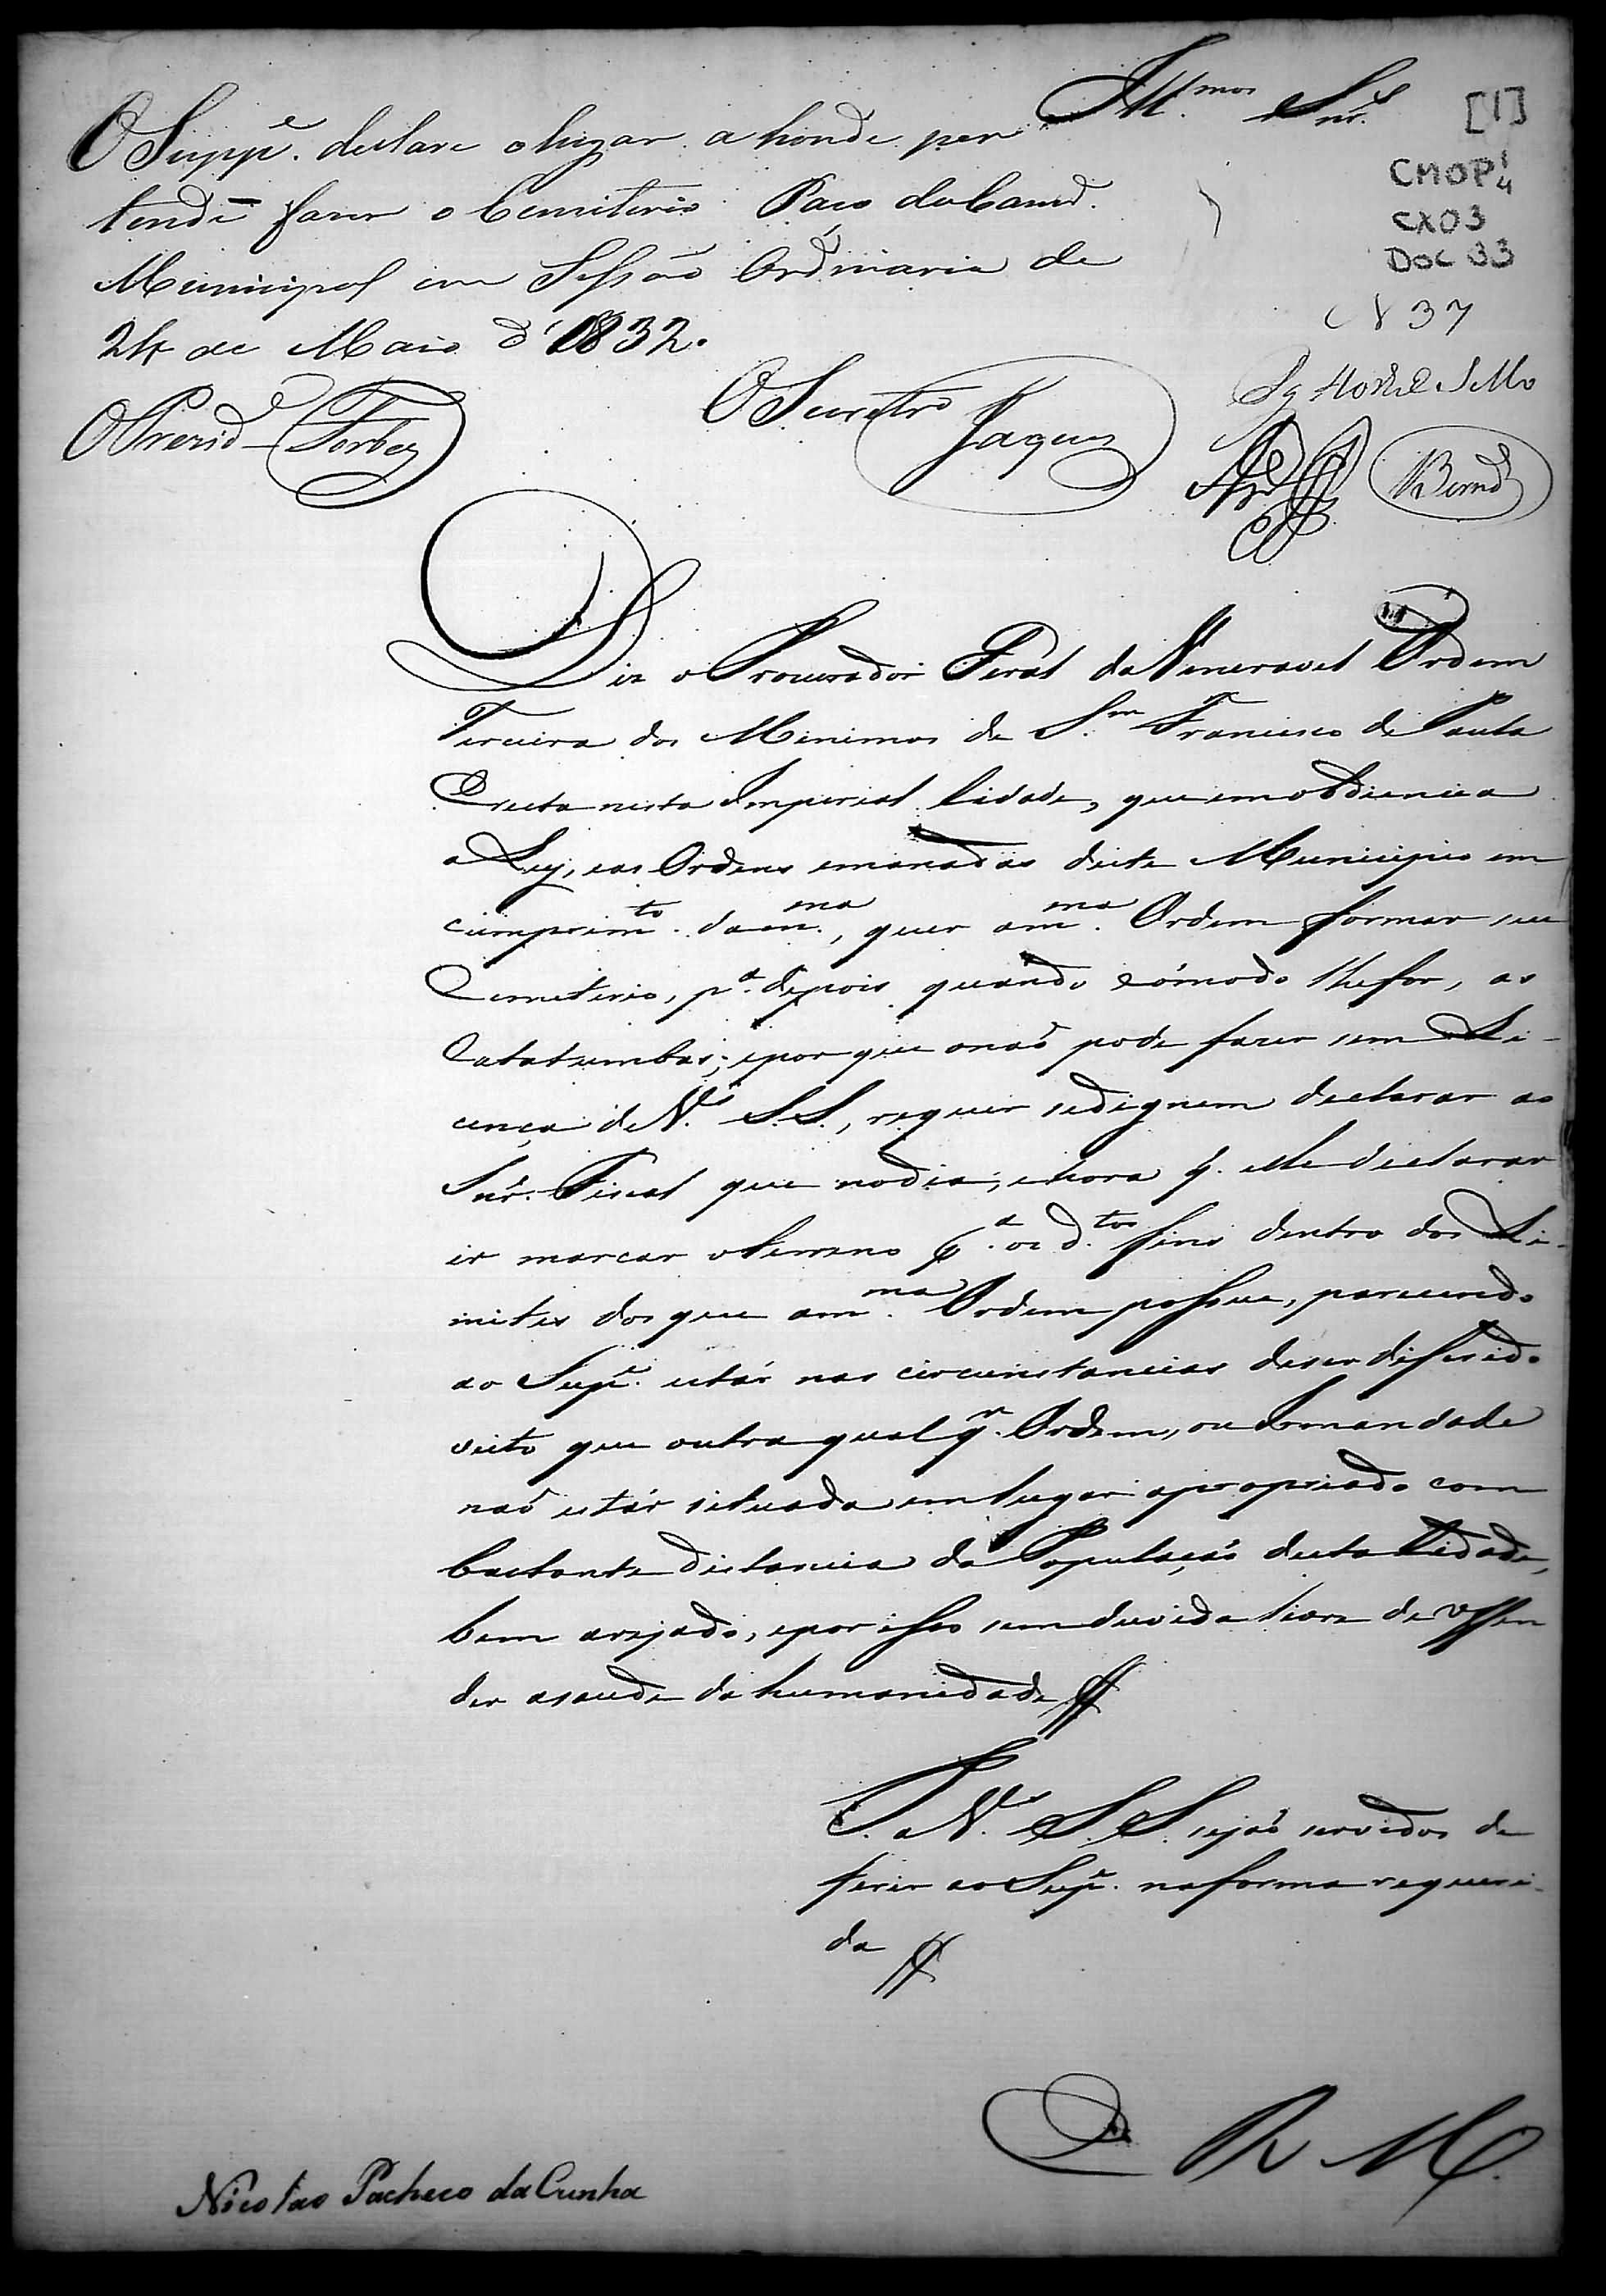 Ill.mos Snr.es
[1]
CMOP 1/4
CX03
DOC 33
N 37
O Supp.e declare o lugar a honde per
tende fazer o Cemiterio Paço da Camr.
Municipal em Sessão Ordinaria de
24 de Maio d'1832.
O Prezid.e Forbes
O Secretro Jaques
Bernd
Diz o Procurador Geral da Veneravel Ordem
Terceira dos Menimos de S.m Francisco de Paula
Erecta nesta Imperial Cidade, que em obdiencia
a Ley, e as Ordens emanadas deste Municipio em
cumprim.to da m.ma, quer a m.ma Ordem formar seu
Cemeterio, p.a depois quando cómodo lhe for, as
Catatumbas; e por que o naõ pode fazer sem Li-
cença de V.s S.S., requer se dignem declarar ao
Snr. Fiscal que no dia, e hora q. elle declarar
ir marcar o Terreno p.a os d.tos fins dentro dos Li-
mites dos que a m.ma Ordem possue, parecendo
ao Sup.e estár nas circunstancias de ser difirido
visto que outra qualq.r Ordem, ou Irmandade
naõ estár situada em lugar apropriado com
bastante distancia da Populaçaõ desta Cidade,
bem arejado, e por isso sem duvida livre de offen
der a saude da humanidade
P. a V.s S.S. sejaõ servidos de
ferir ao Sup.e na forma requeri-
da
E R M.
Nicolao Pacheco da Cunha